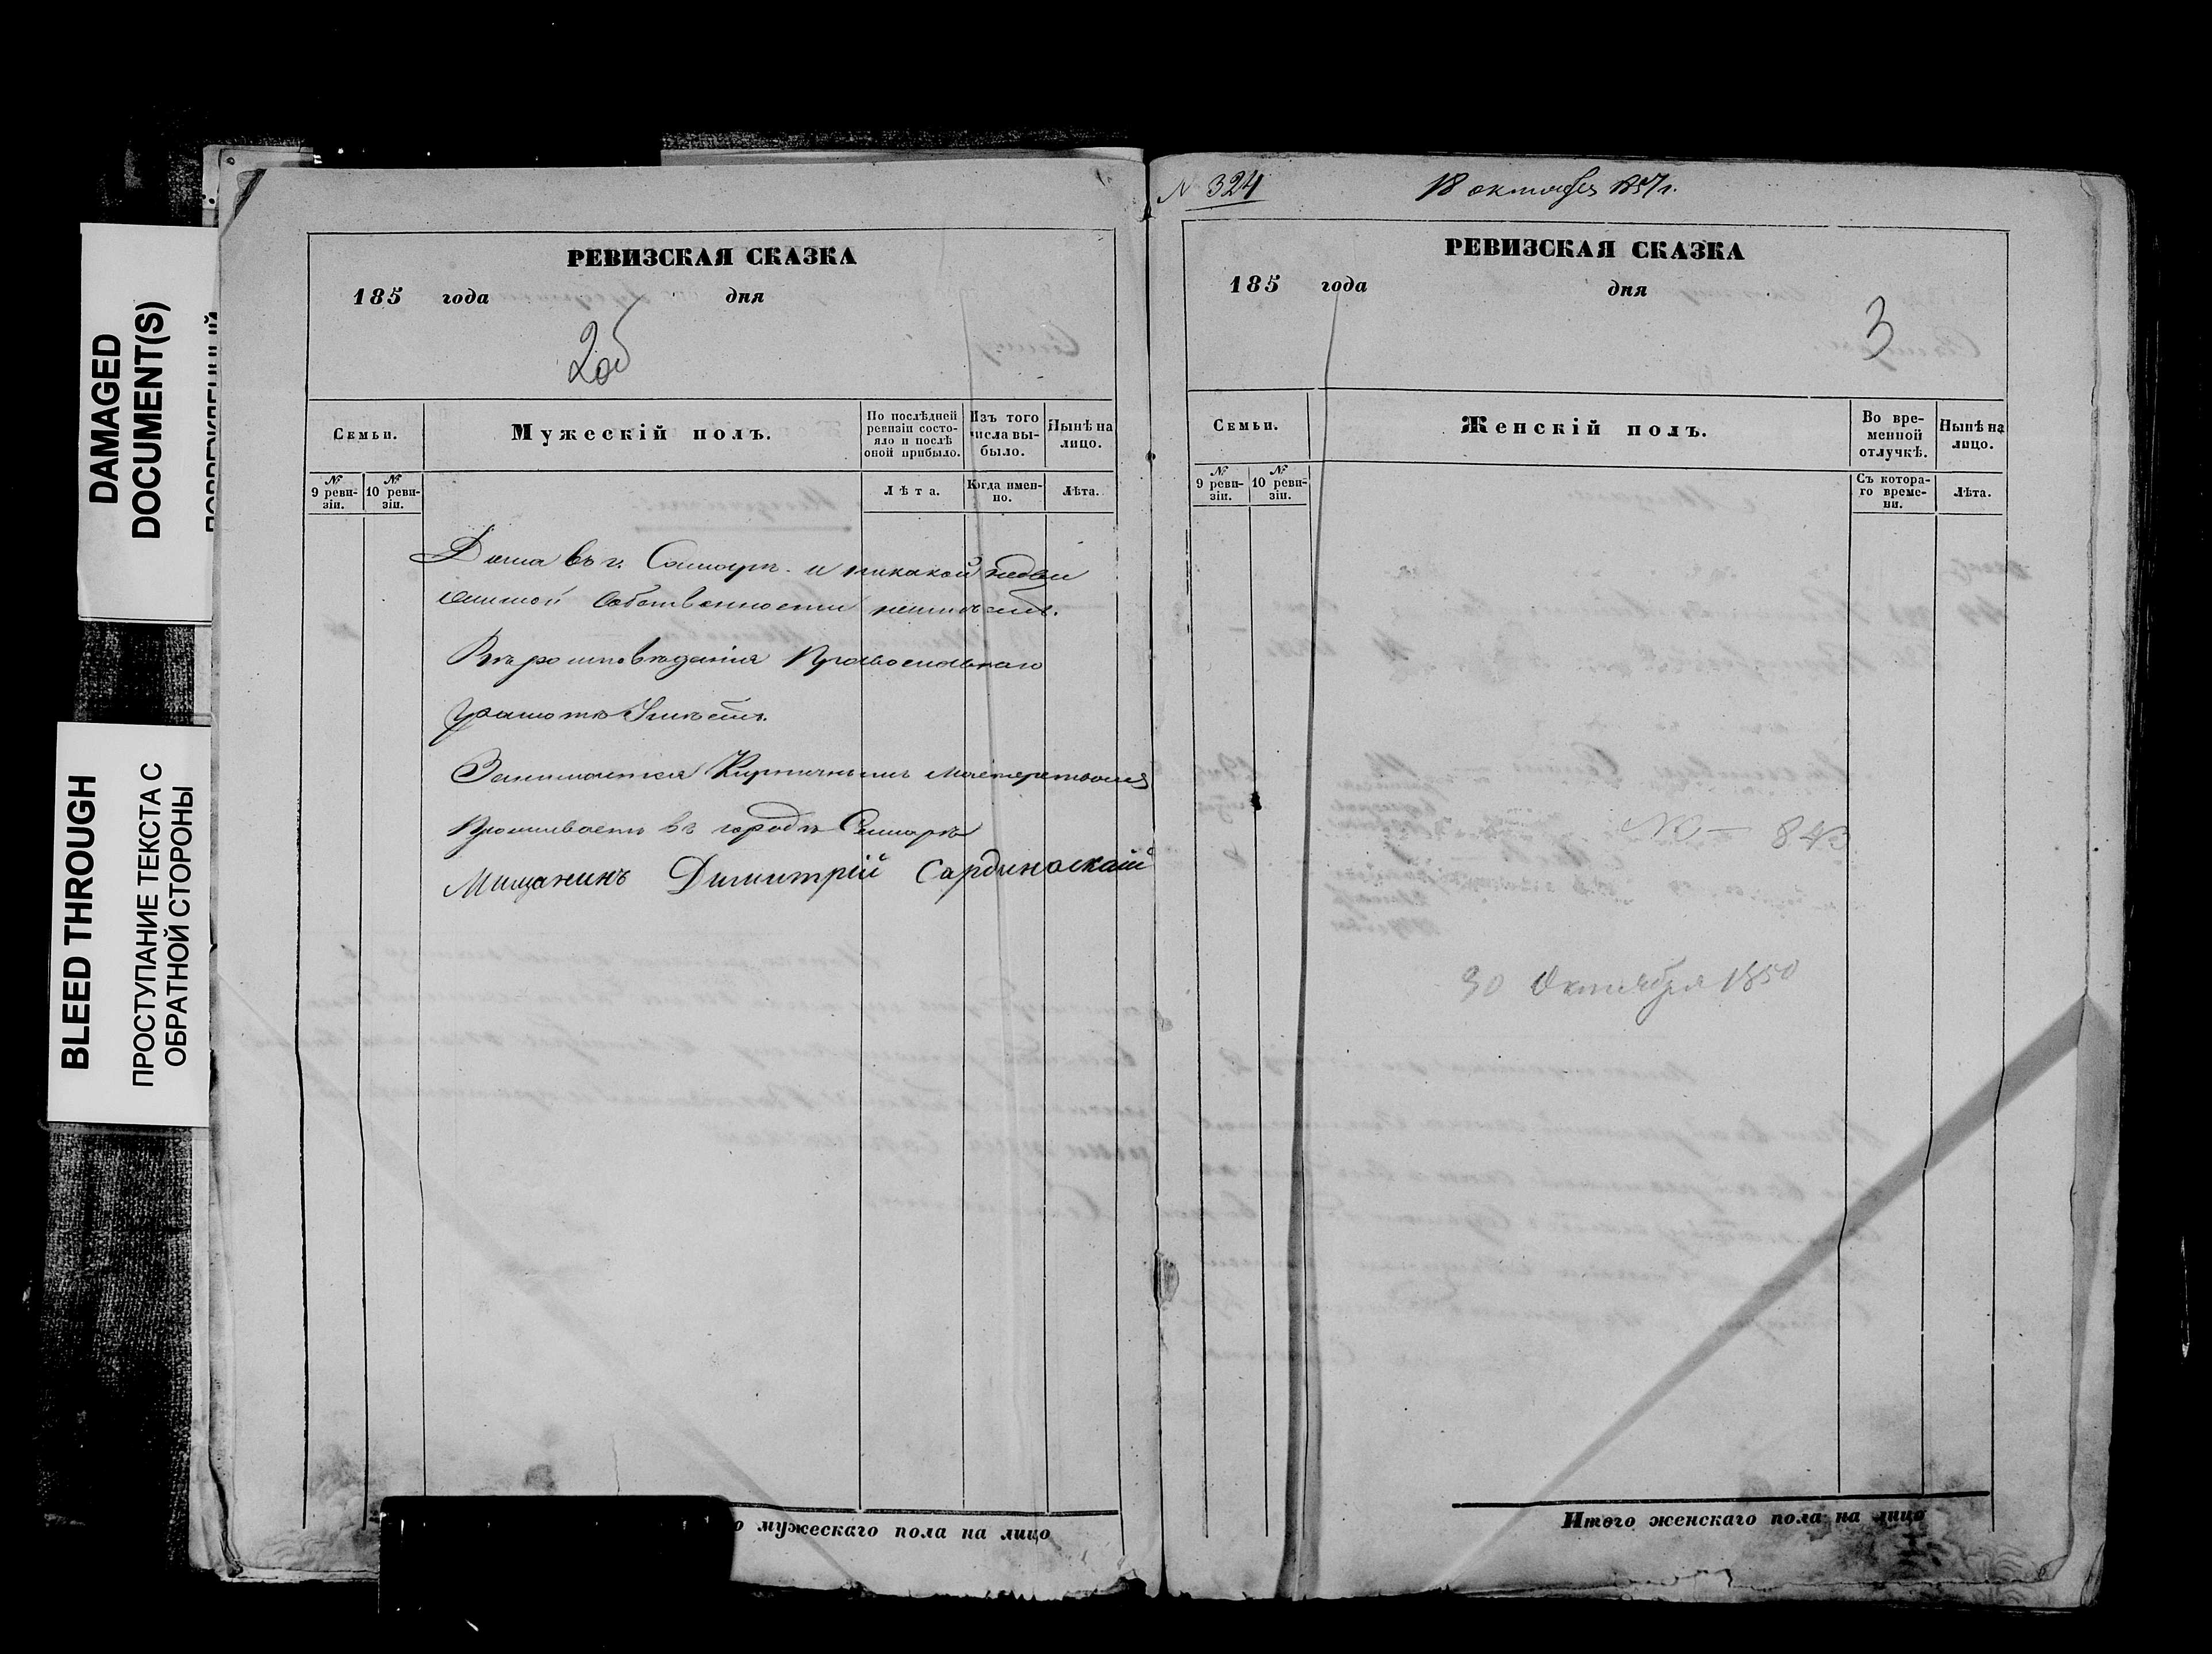 DAMAGED
DOCUMENT(S)
BLEED THROUGH
ПРОСТУПАНИЕ ТЕКСТА С
ОБРАТНОЙ СТОРОНЫ
РЕВИЗСКАЯ СКАЗКА
185 года дня
2об
Семьи.
Мужескій полъ.
По послѣдней
ревизіи состо-
яло и послѣ
оной прибыло.
Изъ того
числа вы-
было.
Нынѣ на
лицо.
№
9 реви-
зіи.
№
10 реви-
зіи.
Лѣта.
Когда имен-
но.
Лѣта.
Дома въ г. Самарѣ и никакой недви
жимой собственности неимѣетъ.
Вѣроисповѣданія Православнаго
Грамотѣ Умѣетъ.
Занимается Кирпичнымъ мастерствомъ
Проживаетъ въ городѣ Самарѣ
Мищанинъ Димитрій
о мужескаго пола на лицо
№ 324
18 октября 1857 г.
РЕВИЗСКАЯ СКАЗКА
185 года дня
3
Семьи.
Женскій полъ.
Во вре-
менной
отлучкѣ.
Нынѣ на
лицо.
№
9 реви-
зіи.
№
10 реви-
зіи.
Съ котора-
го време-
ни.
Лѣта.
843
30 Октября 1850
Итого женскаго пола на лицо